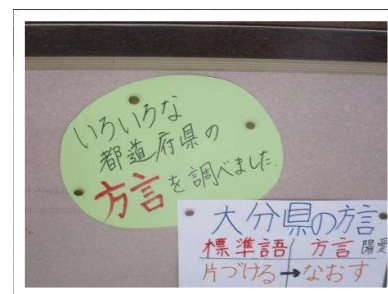 いろいろな
都道府県の
方言を調べました。
大分県の方言
標準語 方言
片づける→なおす